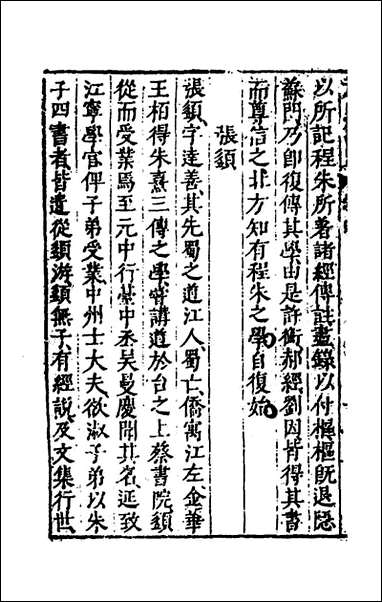 以所記程朱所著諸經傳註盡錄以付樞樞旣退隱
蘇門乃卽復傳其學由是許衡郝經劉因皆得其書
而尊信之北方知有程朱之學自復始
張䇓
張䇓字達善其先蜀之道江人蜀亡僑寓江左金華
王栢得朱熹三傳之學甞講道於台之上蔡書院䇓
從而受業焉至元中行䑓中丞吳曼慶聞其名延致
江寧學官俾子弟受業中州士大夫欲淑子弟以朱
子四書者皆遣從䇓游䇓無子有經說及文集行世